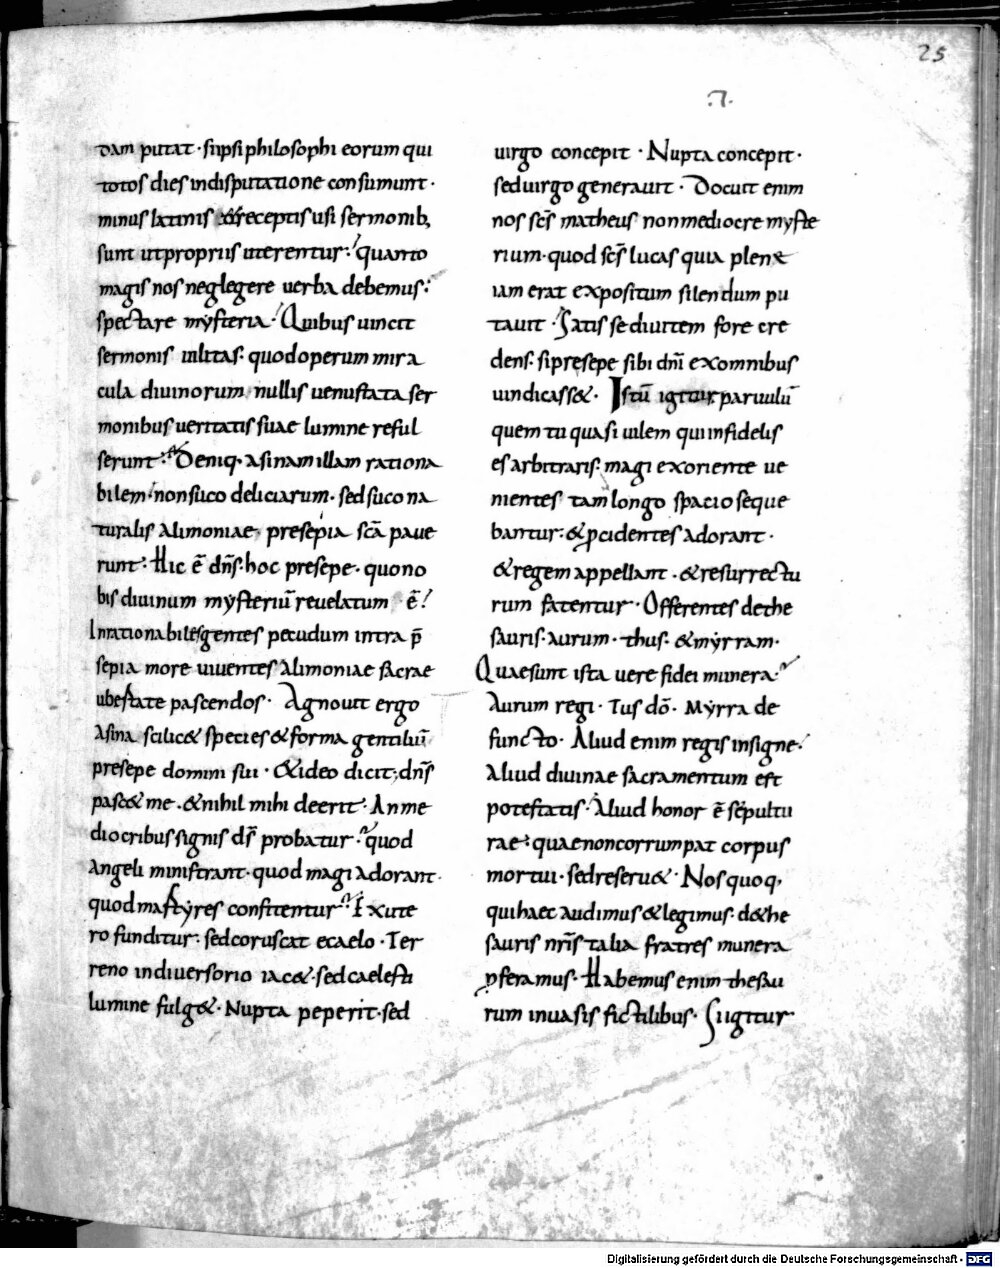 25
.7.
dam putat · sı ipsi philosophi eorum qui
totos dies indisputatione consumunt ·
minus latinis & receptis usi sermonib,
sunt ut propriis uterentur · quanto
magis nos neglegere uerba debemus ·
spectare mysteria · Quibus uincit
sermonis uilitas · quod operum mira
cula diuinorum nullis uenustata ser
monibus ueritatis suae lumine reful
serunt · Deniq· asinam illam rationa
bilem · non suco deliciarum · sed suco na
turalis alimoniae presepia sc̄a paue
runt · Hic ē dn̄s · hoc presepe · quo no
bis diuinum mysteriū reuelatum ē
Inrationabiles gentes pecudum intra p̄
sepia more uiuentes alimoniae sacrae
ubestate pascendos · Agnouit ergo
asina scilic& species & forma gentiliū
presepe domini sui · & ideo dicit; dn̄s
pasc& me · & nihil mihi deerit · An me
diocribus signis dr̄ probatur · quod
angeli ministrant · quod magi adorant ·
quod martyres confitentur · Exute
ro funditur · sed coruscat ecaelo · Ter
reno indiuersorio iac& · sed caelesti
lumine fulg& · Nupta peperit · sed
uirgo concepit · Nupta concepit ·
sed uirgo generauit · Docuit enim
nos sc̄s matheus non mediocre myste
rium · quod sc̄s lucas quia plene
iam erat expositum silendum pu
tauit · Satis se diuitem fore cre
dens · si presepe sibi dn̄i exomnibus
uindicass& · Istū igitur paruulū
quem tu quasi uilem qui infidelis
es arbitraris · magi exoriente ue
nientes tam longo spacio seque
bantur · & pcidentes adorant ·
& regem appellant · & resurrectu
rum fatentur · Offerentes dethe
sauris · aurum · thus · & myrram ·
Quae sunt ista uere fidei munera ·
Aurum regi · Tus dō · Myrra de
functo · Aliud enim regis insigne ·
Aliud diuinae sacramentum est
potestatis · Aliud honor ē sepultu
rae · quae non corrumpat corpus
mortui · sed reseru& · Nos quoq,
qui haec audimus & legimus · d&he
sauris nr̄is talia fratres munera
pferamus · Habemus enim thesau
rum inuasis fictilibus · Si igitur
Digitalisierung gefördert durch die Deutsche Forschungsgemeinschaft - DFG